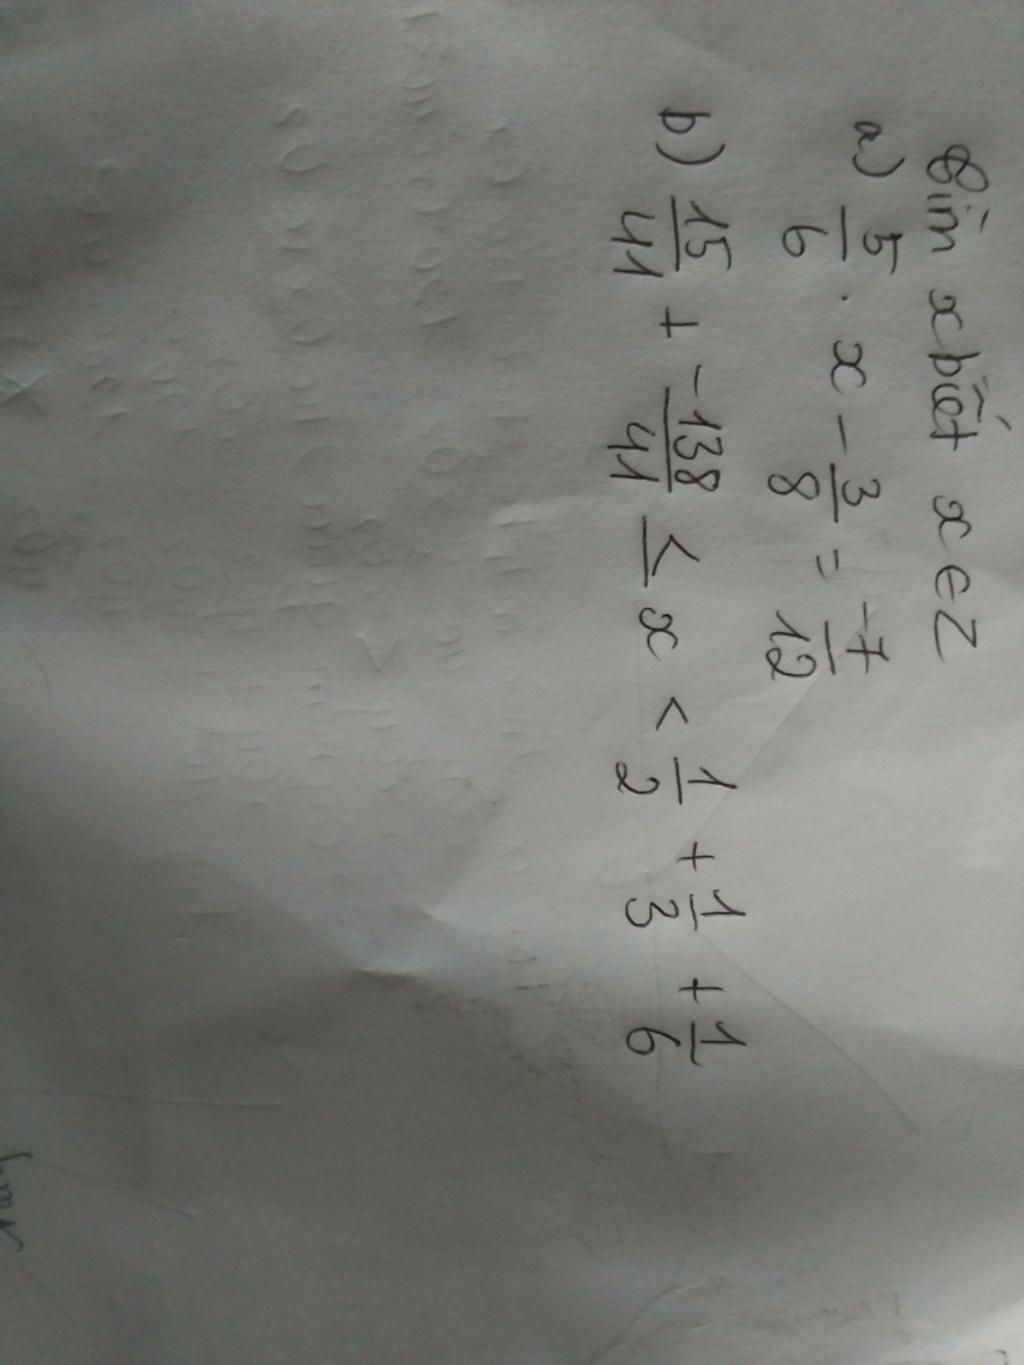 Tìm x biết x ∈ Z
a) 5/6 . x - 3/8 = -7/12
b) 15/41 + -138/41 ≤ x < 1/2 + 1/3 + 1/6